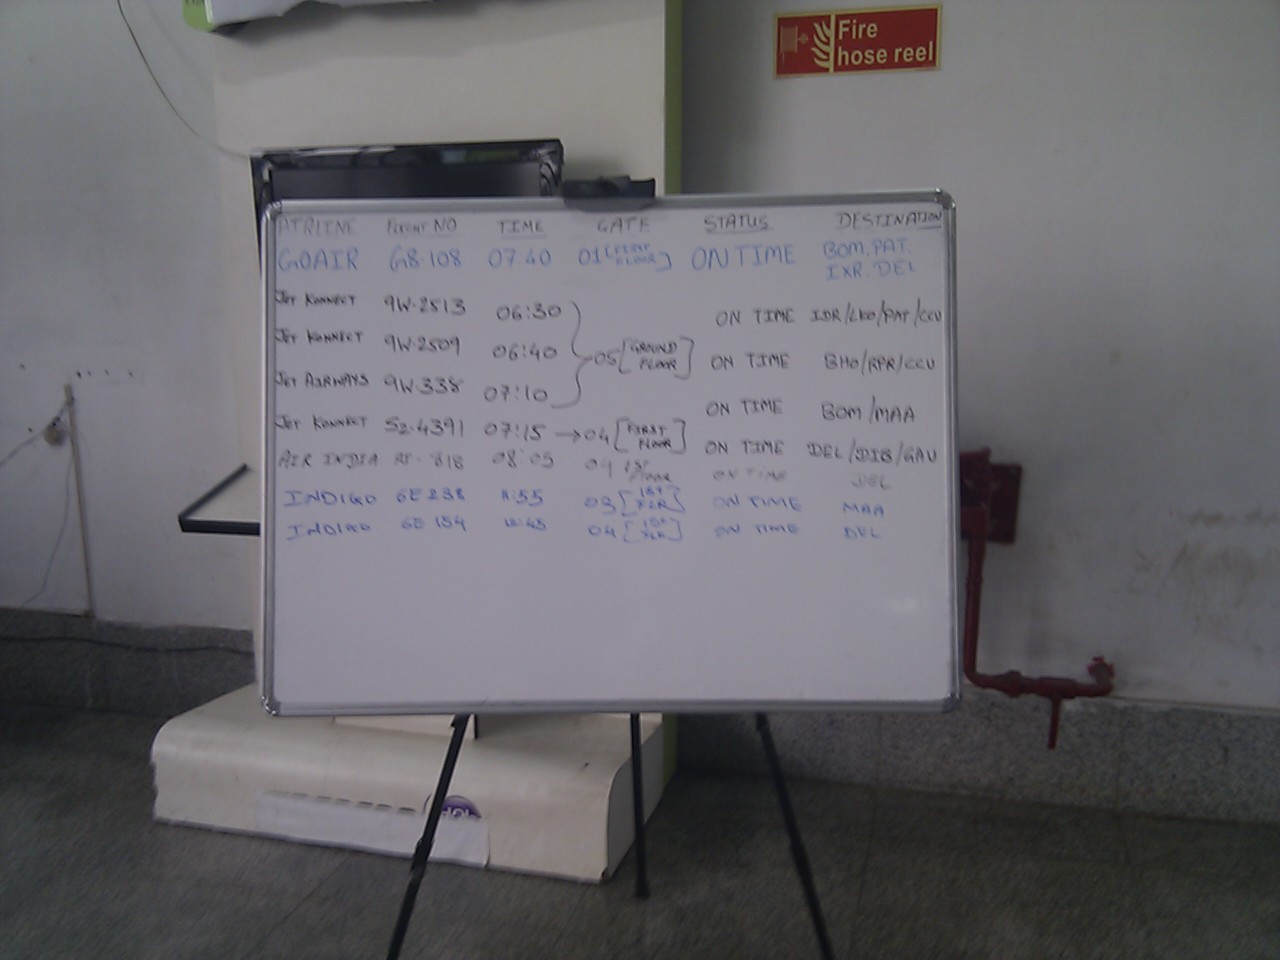 Fire
hose reel
AIRLINE FLIGHT NO TIME GATE STATUS DESTINATION
GOAIR G8-108 07:40 01 [FIRST FLOOR] ON TIME BOM.PAT. IXR.DEL
JET KONNECT 9W-2513 06:30 ON TIME IDR/LKO/PAT/CCU
JET KONNECT 9W-2509 06:40 05 [GROUND FLOOR] ON TIME BHO/RPR/CCU
JET AIRWAYS 9W-338 07:10 ON TIME BOM/MAA
JET KONNECT S2-4391 07:15 → 04 [FIRST FLOOR] ON TIME DEL/DIB/GAU
AIR INDIA 08:05 04 1ST FLOOR ON TIME DEL
INDIGO 6E 238 03 [1ST FLR] ON TIME MAA
INDIGO 6E 154 04 [1ST FLR] ON TIME DEL